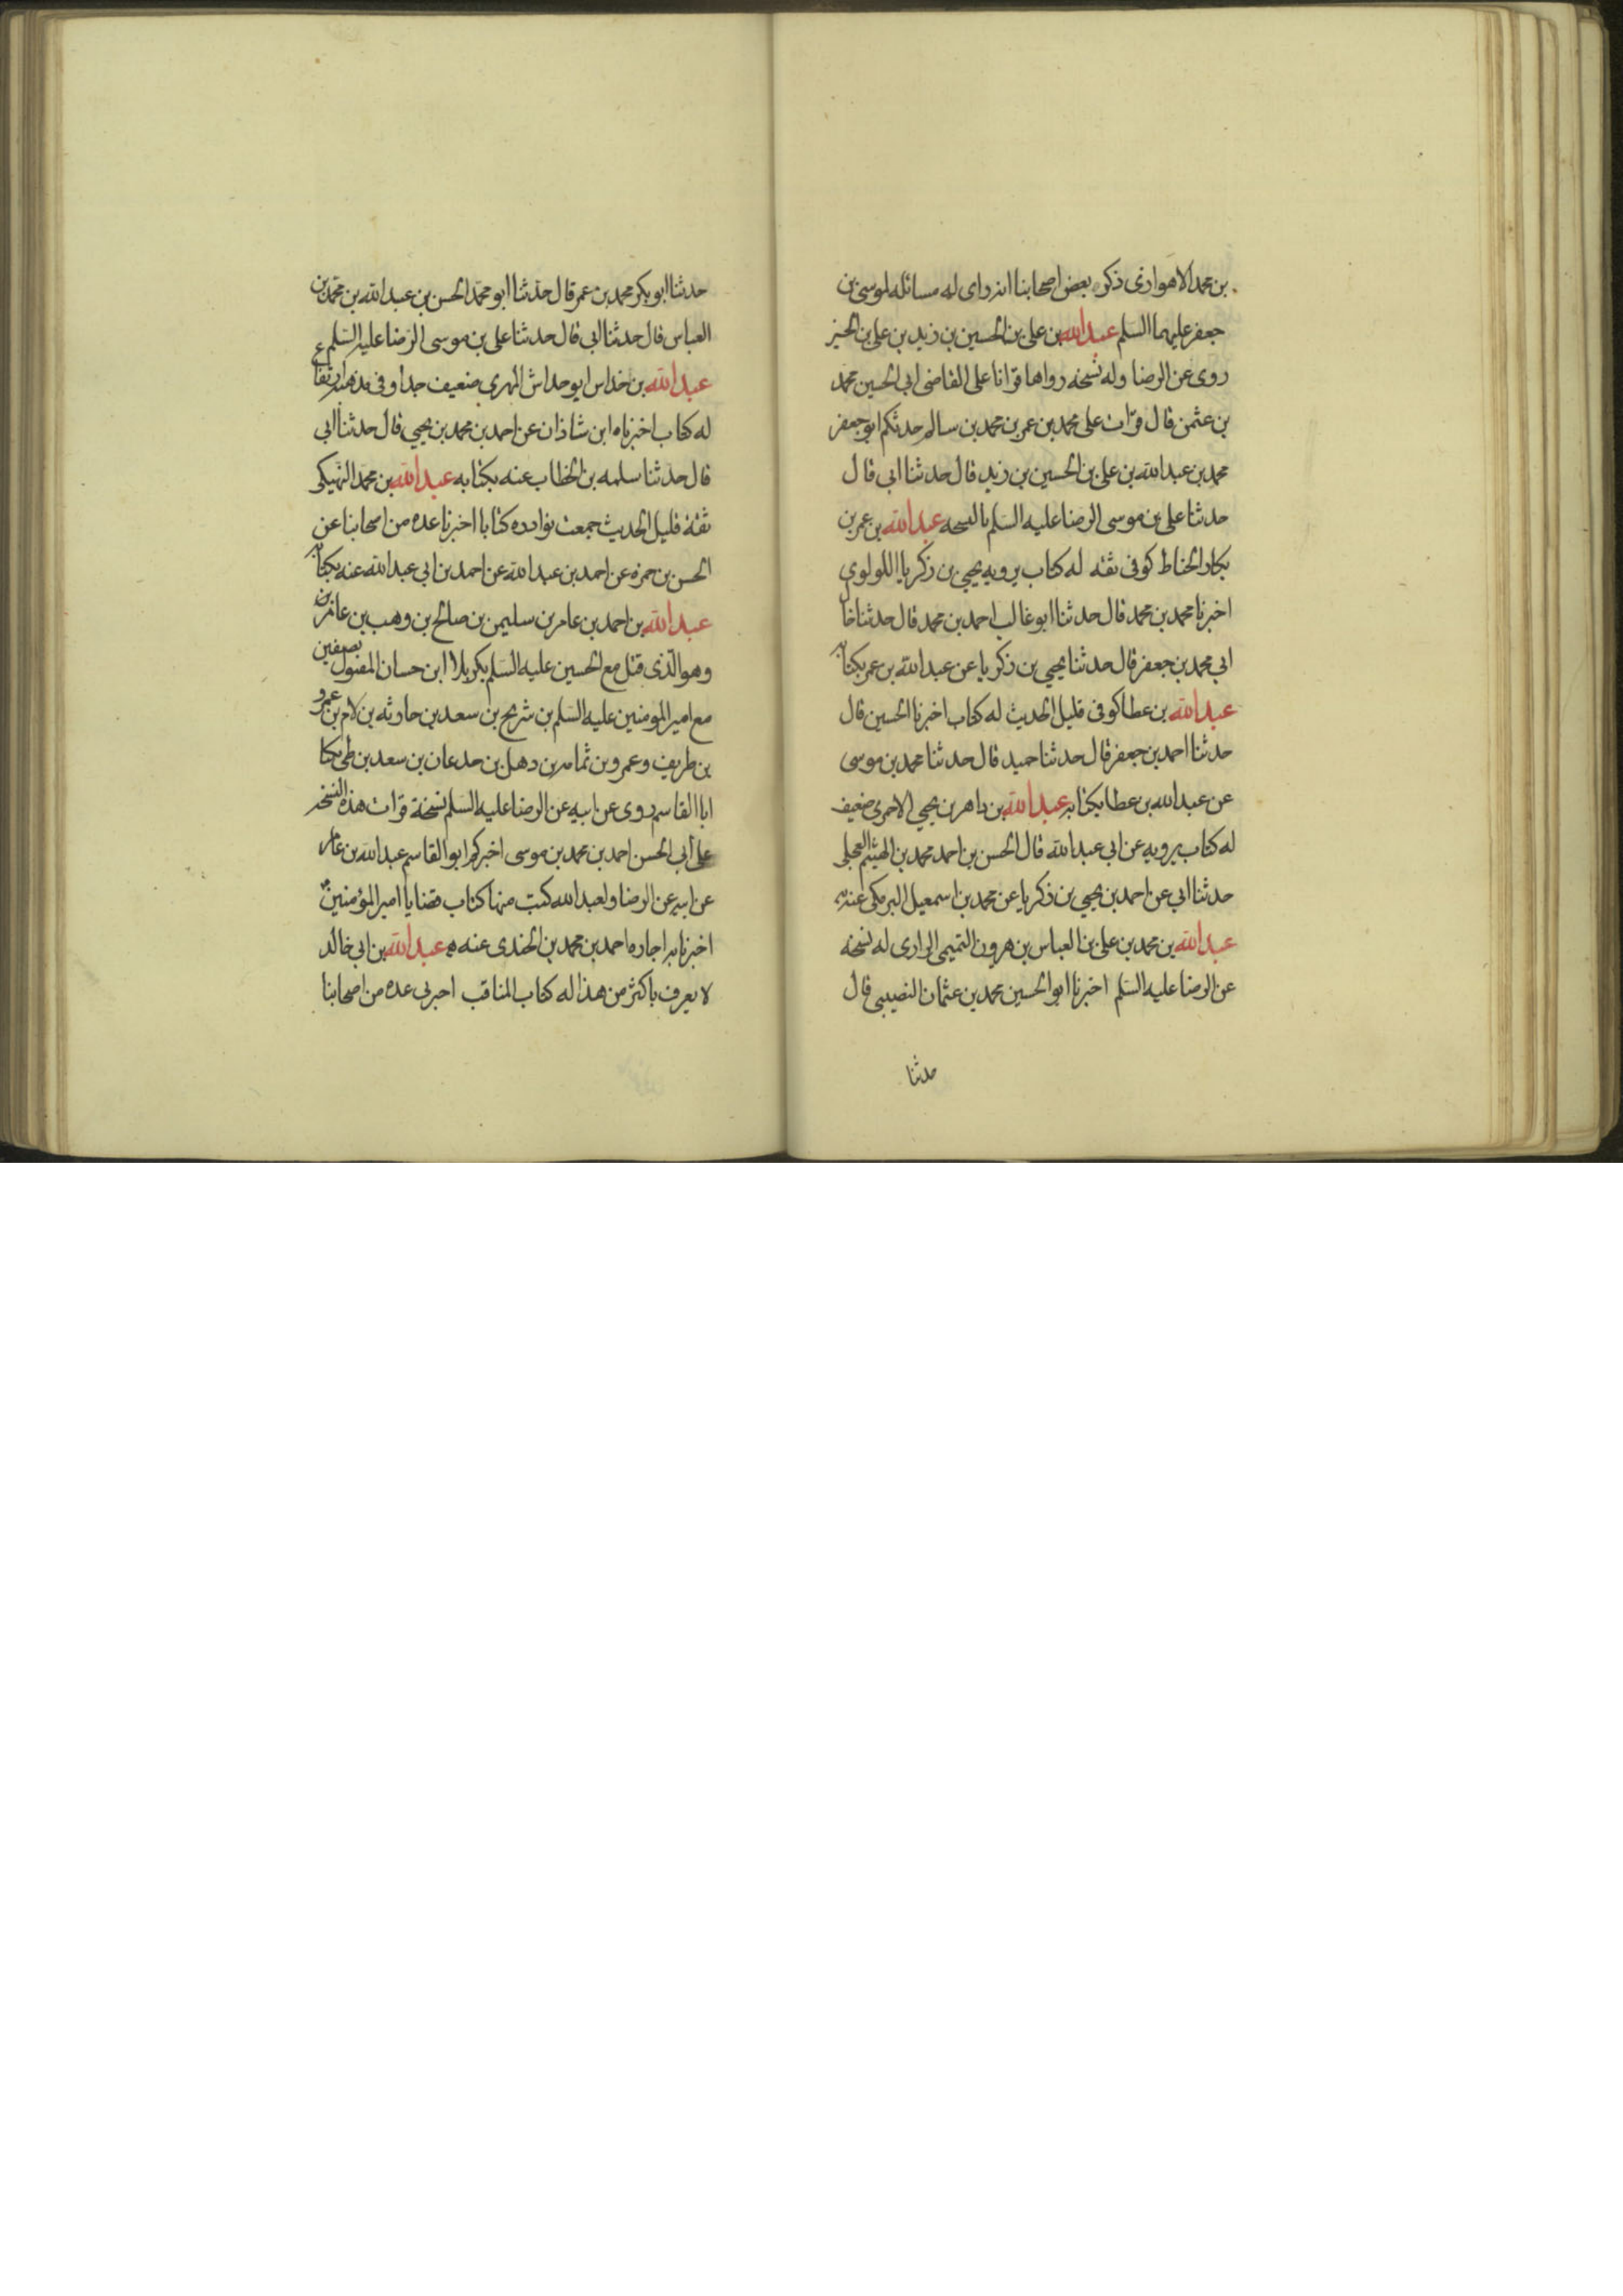 بن محمد الاهوازى ذكره بعض اصحابنا انه راى له مسائله لموسى بن
جعفر عليهما السلم عبد الله بن على بن الحسين بن زيد بن على بن الحسين
روى عن الرضا وله نسخه رواها قرانا على القاضى ابى الحسين محمد
بن عثمن قال قرات على محمد بن عمر بن محمد بن سالم حدثكم ابو جعفر
محمد بن عبد الله بن على بن الحسين بن زيد قال حدثنا ابى قال
حدثنا على بن موسى الرضا عليه السلم بالنسخه عبد الله بن عمر بن
بكار الحناط كوفى ثقه له كتاب يرويه يحيى بن زكريا اللولوى
اخبرنا محمد بن محمد قال حدثنا ابو غالب احمد بن محمد قال حدثنا خال
ابى محمد بن جعفر قال حدثنا يحيى بن زكريا عن عبد الله بن عمر بكتابه
عبد الله بن عطا كوفى قليل الحديث له كتاب اخبرنا الحسين قال
حدثنا احمد بن جعفر قال حدثنا حميد قال حدثنا محمد بن موسى
عن عبد الله بن عطا بكتابه عبد الله بن داهر بن يحيى الاحمرى ضعيف
له كتاب يرويه عن ابى عبد الله قال الحسن بن احمد محمد بن الهيثم العجلى
حدثنا ابى عن احمد بن يحيى بن زكريا عن محمد بن اسمعيل البرمكى عنه به
عبد الله بن محمد بن على بن العباس بن هرون التميمى الرازى له نسخه
عن الرضا عليه السلم اخبرنا ابو الحسين محمد بن عثمان النصيبى قال
حدثنا
حدثنا ابو بكر محمد بن عمر قال حدثنا ابو محمد الحسن بن عبد الله بن محمد بن
العباس قال حدثنا ابى قال حدثنا على بن موسى الرضا عليه السلم
عبد الله بن خداس ابو خداش المهرى ضعيف جدا وفى مذهبه ارتفاع
له كتاب اخبرناه ابن شاذان عن احمد بن محمد بن يحيى قال حدثنا ابى
قال حدثنا سلمه بن الخطاب عنه بكتابه عبد الله بن محمد النهيكى
ثقة قليل الحديث جمعت نوادره كتابا اخبرنا عده من اصحابنا عن
الحسن بن حمزه عن احمد بن عبد الله عن احمد بن ابى عبد الله عنه بكتابه
عبد الله بن احمد بن عامر بن سليمن بن صالح بن وهب بن عامر بن
وهو الذى قتل مع الحسين عليه السلم بكربلا ابن حسان المقتول بصفين
مع امير المومنين عليه السلم بن شريح بن سعد بن حارثه بن لام بن عمرو
بن طريف وعمرو بن ثمامه بن دهل بن جدعان بن سعد بن طى يكنا
ابا القاسم روى عن ابيه عن الرضا عليه السلم نسخة قرات هذه النسخه
على ابى الحسن احمد بن محمد بن موسى اخبركم ابو القاسم عبد الله بن عامر
عن ابيه عن الرضا ولعبد الله كتب منها كتاب قضايا امير المؤمنين
اخبرنا به اجازه احمد بن محمد بن الجندى عنه به عبد الله بن ابى خالد
لا يعرف باكثر من هذا له كتاب المناقب اخبرنى عده من اصحابنا